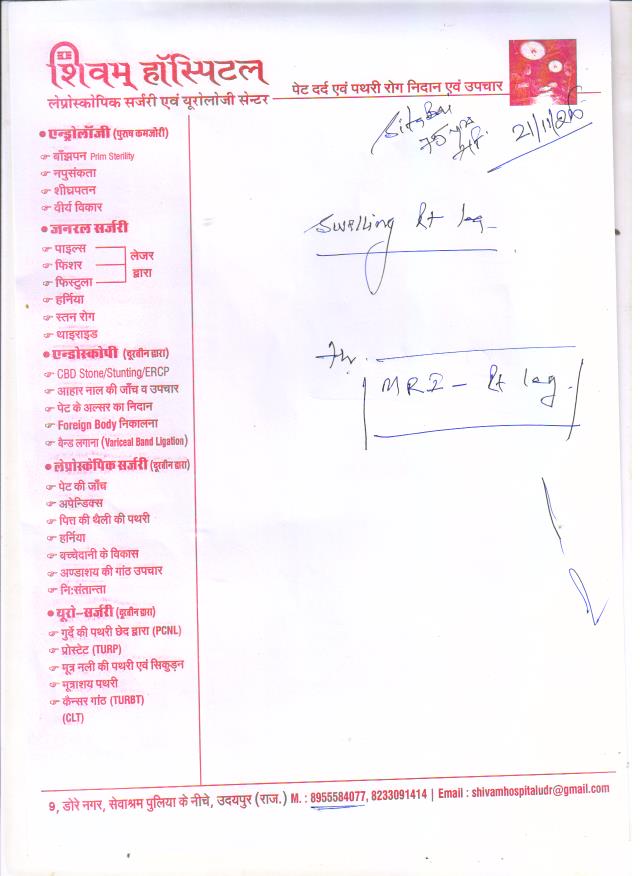 शिवम् हॉस्पिटल
लेप्रोस्कोपिक सर्जरी एवं यूरोलोजी सेन्टर
पेट दर्द एवं पथरी रोग निदान एवं उपचार
75 yrs
21/11/
Swelling Rt leg
MRI - Rt leg.
• एन्ड्रोलॉजी (पुरुष कमजोरी)
☞ बाँझपन Prim Sterility
☞ नपुसंकता
☞ शीघ्रपतन
☞ वीर्य विकार
• जनरल सर्जरी
☞ पाइल्स
☞ फिशर
☞ फिस्टुला
लेजर
द्वारा
☞ हर्निया
☞ स्तन रोग
☞ थाइराइड
• एण्डोस्कोपी (दूरबीन द्वारा)
☞ CBD Stone/Stunting/ERCP
☞ आहार नाल की जाँच व उपचार
☞ पेट के अल्सर का निदान
☞ Foreign Body निकालना
☞ बैन्ड लगाना (Variceal Band Ligation)
• लेप्रोस्कोपिक सर्जरी (दूरबीन द्वारा)
☞ पेट की जाँच
☞ अपेन्डिक्स
☞ पित्त की थैली की पथरी
☞ हर्निया
☞ बच्चेदानी के विकास
☞ अण्डाशय की गांठ उपचार
☞ नि:संतान्ता
• यूरो-सर्जरी (दूरबीन द्वारा)
☞ गुर्दे की पथरी छेद द्वारा (PCNL)
☞ प्रोस्टेट (TURP)
☞ मूत्र नली की पथरी एवं सिकुड़न
☞ मूत्राशय पथरी
☞ कैन्सर गांठ (TURBT)
(CLT)
9, डोरे नगर, सेवाश्रम पुलिया के नीचे, उदयपुर (राज.) M. : 8955584077, 8233091414 | Email : shivamhospitaludr@gmail.com